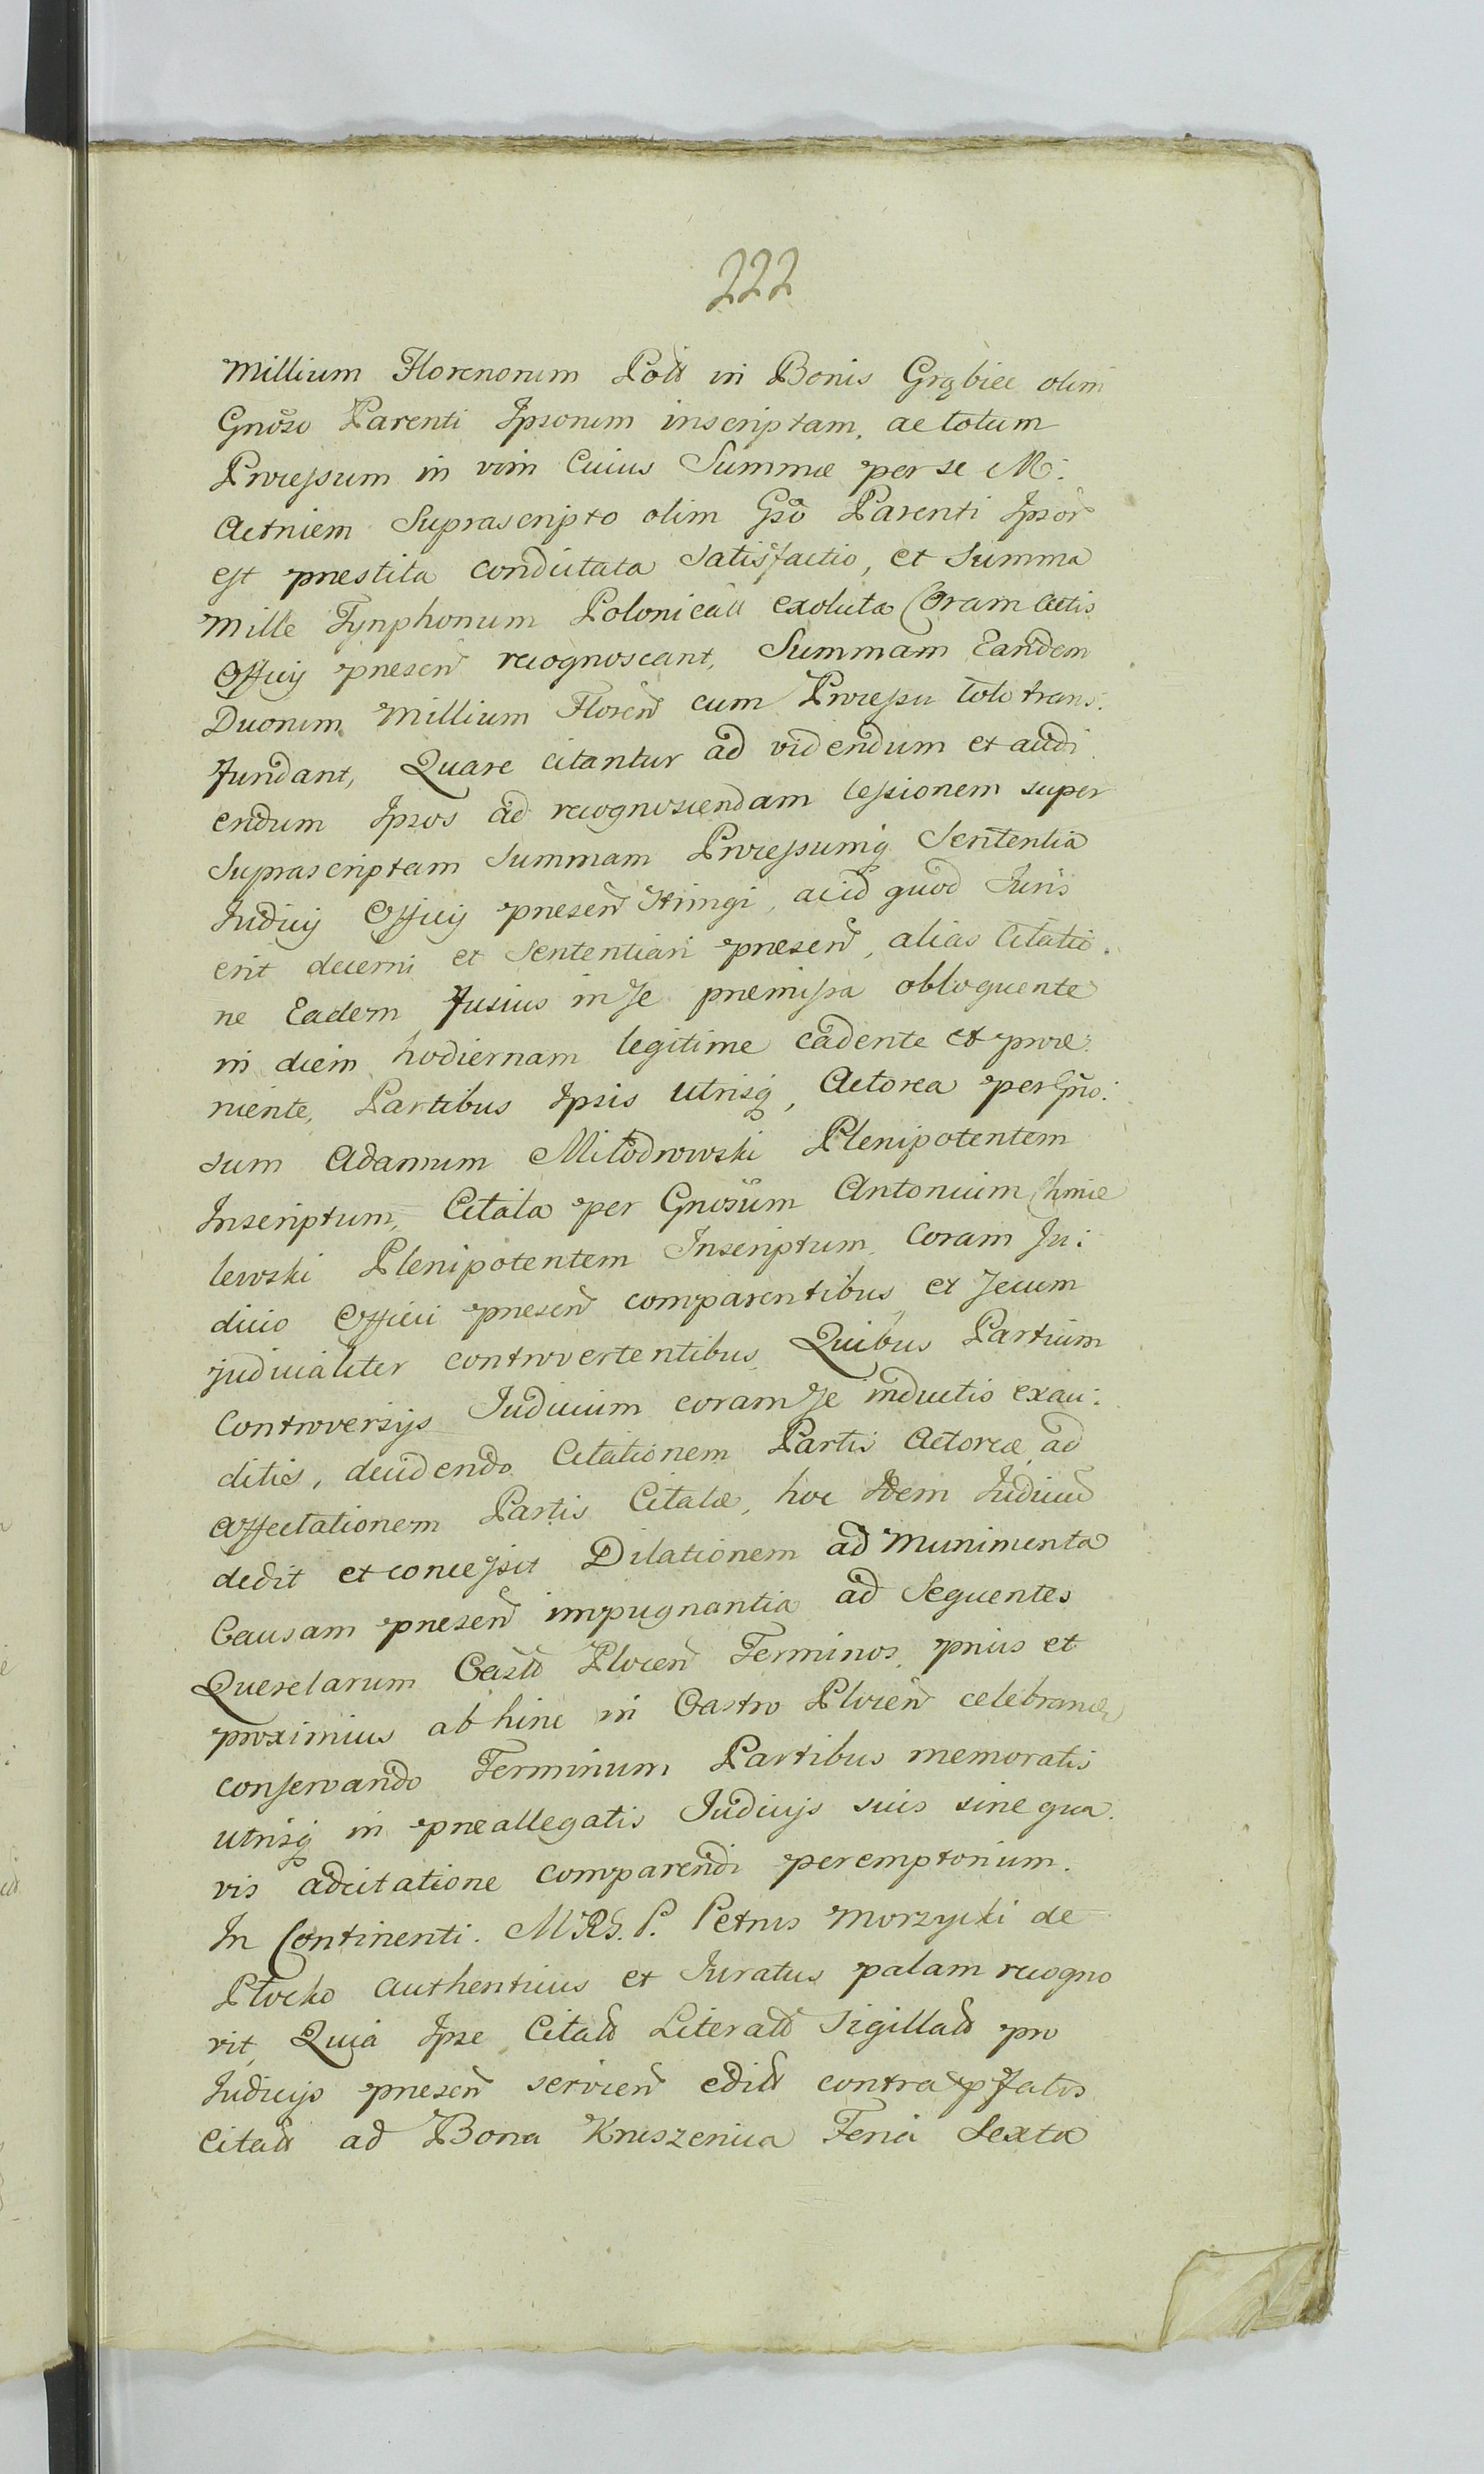 222
Millium Florenorum Poll in Bonis Grąbiec olim
Gnoso Parenti Ipsorum inscriptam, ac totum
Processum in vim Cuius Summæ per se M:
Actricem Suprascripto olim Gso Parenti Ipsor
est præstita condictata Satisfactio, et Summa
Mille Tynphorum Polonicall exoluta Coram Actis
Officij præsen recognoscant, Summam Eandem
Duorum Millium Floren cum Processu toto trans:
fundant, Quare citantur ad videndum et audi
endum Ipsos ad recognoscendam Cessionem super
Suprascriptam Summam Processumq Sententia
Judicij Officij præsen stringi, acid quod Juris
erit decerni et Sententiari præsen, alias Citatio:
ne Eadem fusius in se præmissa obloquente
in diem hodiernam legitime cadente et prove:
niente, Partibus Ipsis utrisq, Actorea per Gno:
sum Adamum Miłodrowski Plenipotentem
Inscriptum, Citata per Gnosum Antonium Chmie
lewski Plenipotentem Inscriptum, Coram Ju:
dicio Officii præsen comparentibus, et secum
judicialiter controvertentibus, Quibus Partium
Controversijs Judicium coram se inductis exau:
ditis, decidendo Citationem Partis Actoreæ, ad
affectationem Partis Citatæ, hoc Idem Judiciu
dedit et concessit Dilationem ad Munimenta
Causam præsen impugnantia ad Sequentes
Querelarum Castll Plocen Terminos, prius et
proximius ab hinc in Castro Plocen celebrand
conservando Terminum Partibus memoratis
utrisq in præallegatis Judicijs suis sine qua:
vis adcitatione comparendi peremptorium.
In Continenti. M.R.G.P. Petrus Morzycki de
Płocko authenticus et Juratus palam recogno
vit, Quia Ipse Citall Literall Sigillall pro
Judicijs præsen servien edill contra pfatos
Citall ad Bona Kruszenica Feria Sexta